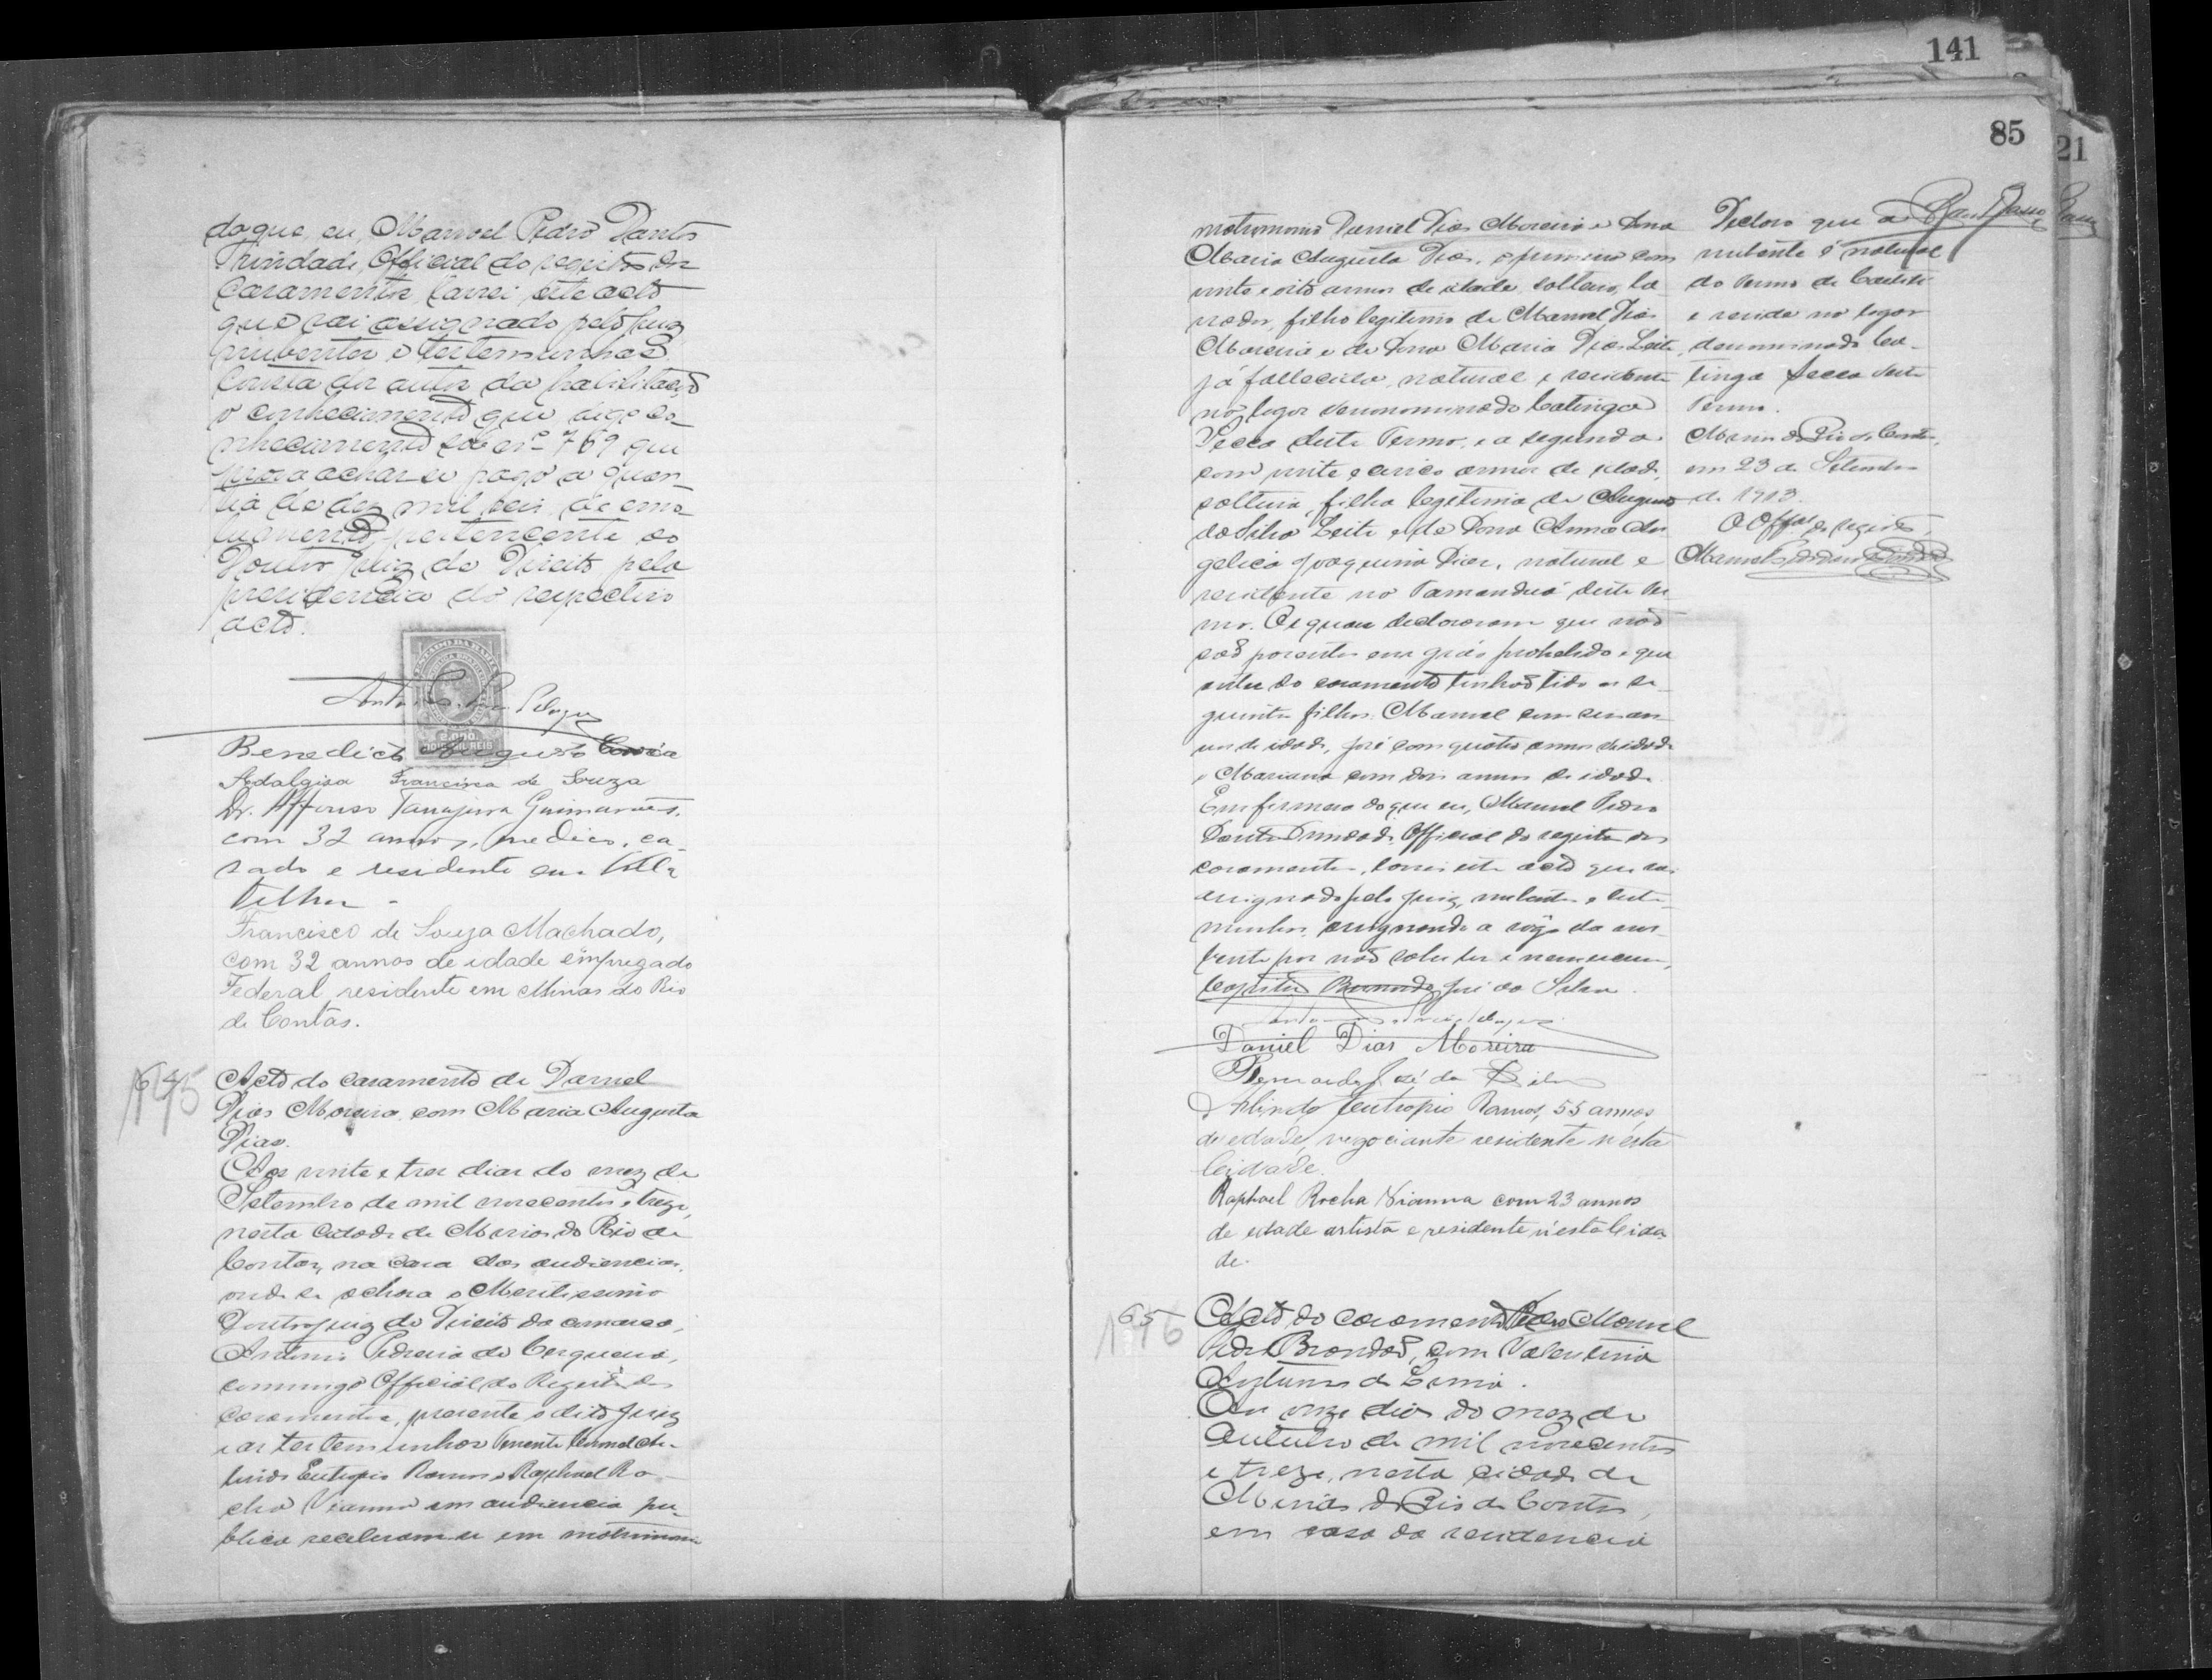 do que, eu, Manoel Pedro Dantas
Trindade, Official do registo dos
Casamentos, lavrei este acto
que vai assignado pelo Juiz
nubentes e testemunhas.
Consta dos autos da habilitação
o conhecimento que digo co-
nhecimento sob nº 769 que
prova achar-se pago a quan-
tia de dez mil reis de emo-
lumento pertencente ao
Doutor Juiz de Direito pela
presidencia do respectivo
acto.
ESTADO DA BAHIA
2.000
DOIS MIL REIS
Benedicto Augusto Corrêa
Adalgisa Francisca de Souza
Dr. Affonso Tanajura Guimarães,
com 32 annos, medico, ca-
sado e residente em Villa
Velha -
Francisco de Souza Machado,
com 32 annos de edade empregado
Federal residente em Minas do Rio
de Contas.
64
Acto do casamento de Daniel
Dias Moreira, com Maria Augusta
Dias.
Aos vinte e tres dias do mez de
Setembro de mil novecentos e treze,
nesta Cidade de Minas do Rio de
Contas, na casa das audiencias,
onde se achava o Meritissimo
Doutor Juiz de Direito da comarca,
Antonio Pedreira de Cerqueira,
commigo Official do Registo dos
Casamentos, presente o dito Juiz
e as testemunhas Tenente Coronel Ar-
lindo Eutropio Ramos e Raphael Ro-
cha Vianna em audiencia pu-
blica receberam-se em matrimonio
141
85
21
matrimonio Daniel Dias Moreira e Dona
Maria Augusta Dias, o primeiro com
vinte e oito annos de idade, solteiro, la-
vrador, filho legitimo de Manoel Dias
Moreira e de Dona Maria Dias Leite,
já fallecida, natural e residente
no logar denominado Catinga
Secca deste Termo, e a segunda
com vinte e cinco annos de idade,
solteira, filha legitima de Augusto
da Silva Leite e de Dona Anna An-
gelica Joaquina Dias, natural e
residente no Tamanduá deste Ter-
mo. Os quaes declararam que não
são parentes em gráo prohibido e que
antes do casamento tinhão tido os se-
guintes filhos: Manoel com seis an-
nos de idade, José com quatro annos de idade
e Mariana com dois annos de idade.
Em firmeza do que eu, Manoel Pedro
Dantas Trindade, Official do registo dos
casamentos, lavrei este acto que vai
assignado pelo Juiz, nubentes e teste-
munhas, assignando a rôgo da nu-
bente por não saber ler e nem escrever,
Capitão Bernardo José da Silva.
Daniel Dias Moreira
Bernardo José da Silva
Arlindo Eutropio Ramos, 55 annos,
de edade, negociante residente n'esta
Cidade.
Raphael Rocha Vianna com 23 annos
de edade artista e residente n'esta Cida-
de.
Declaro que a
nubente é natural
do termo de Caetité
e reside no logar
denominado Ca-
tinga Secca deste
Termo.
Minas do Rio de Contas,
em 23 de Setembro
de 1913.
O Offal do registo
Manoel Pedro Dantas Trindade
65
Acto do casamento de Manoel
Pedro Brandão, com Valentina
Aos onze dias do mez de
Outubro de mil novecentos
e treze, nesta cidade de
Minas do Rio de Contas,
em casa da residencia